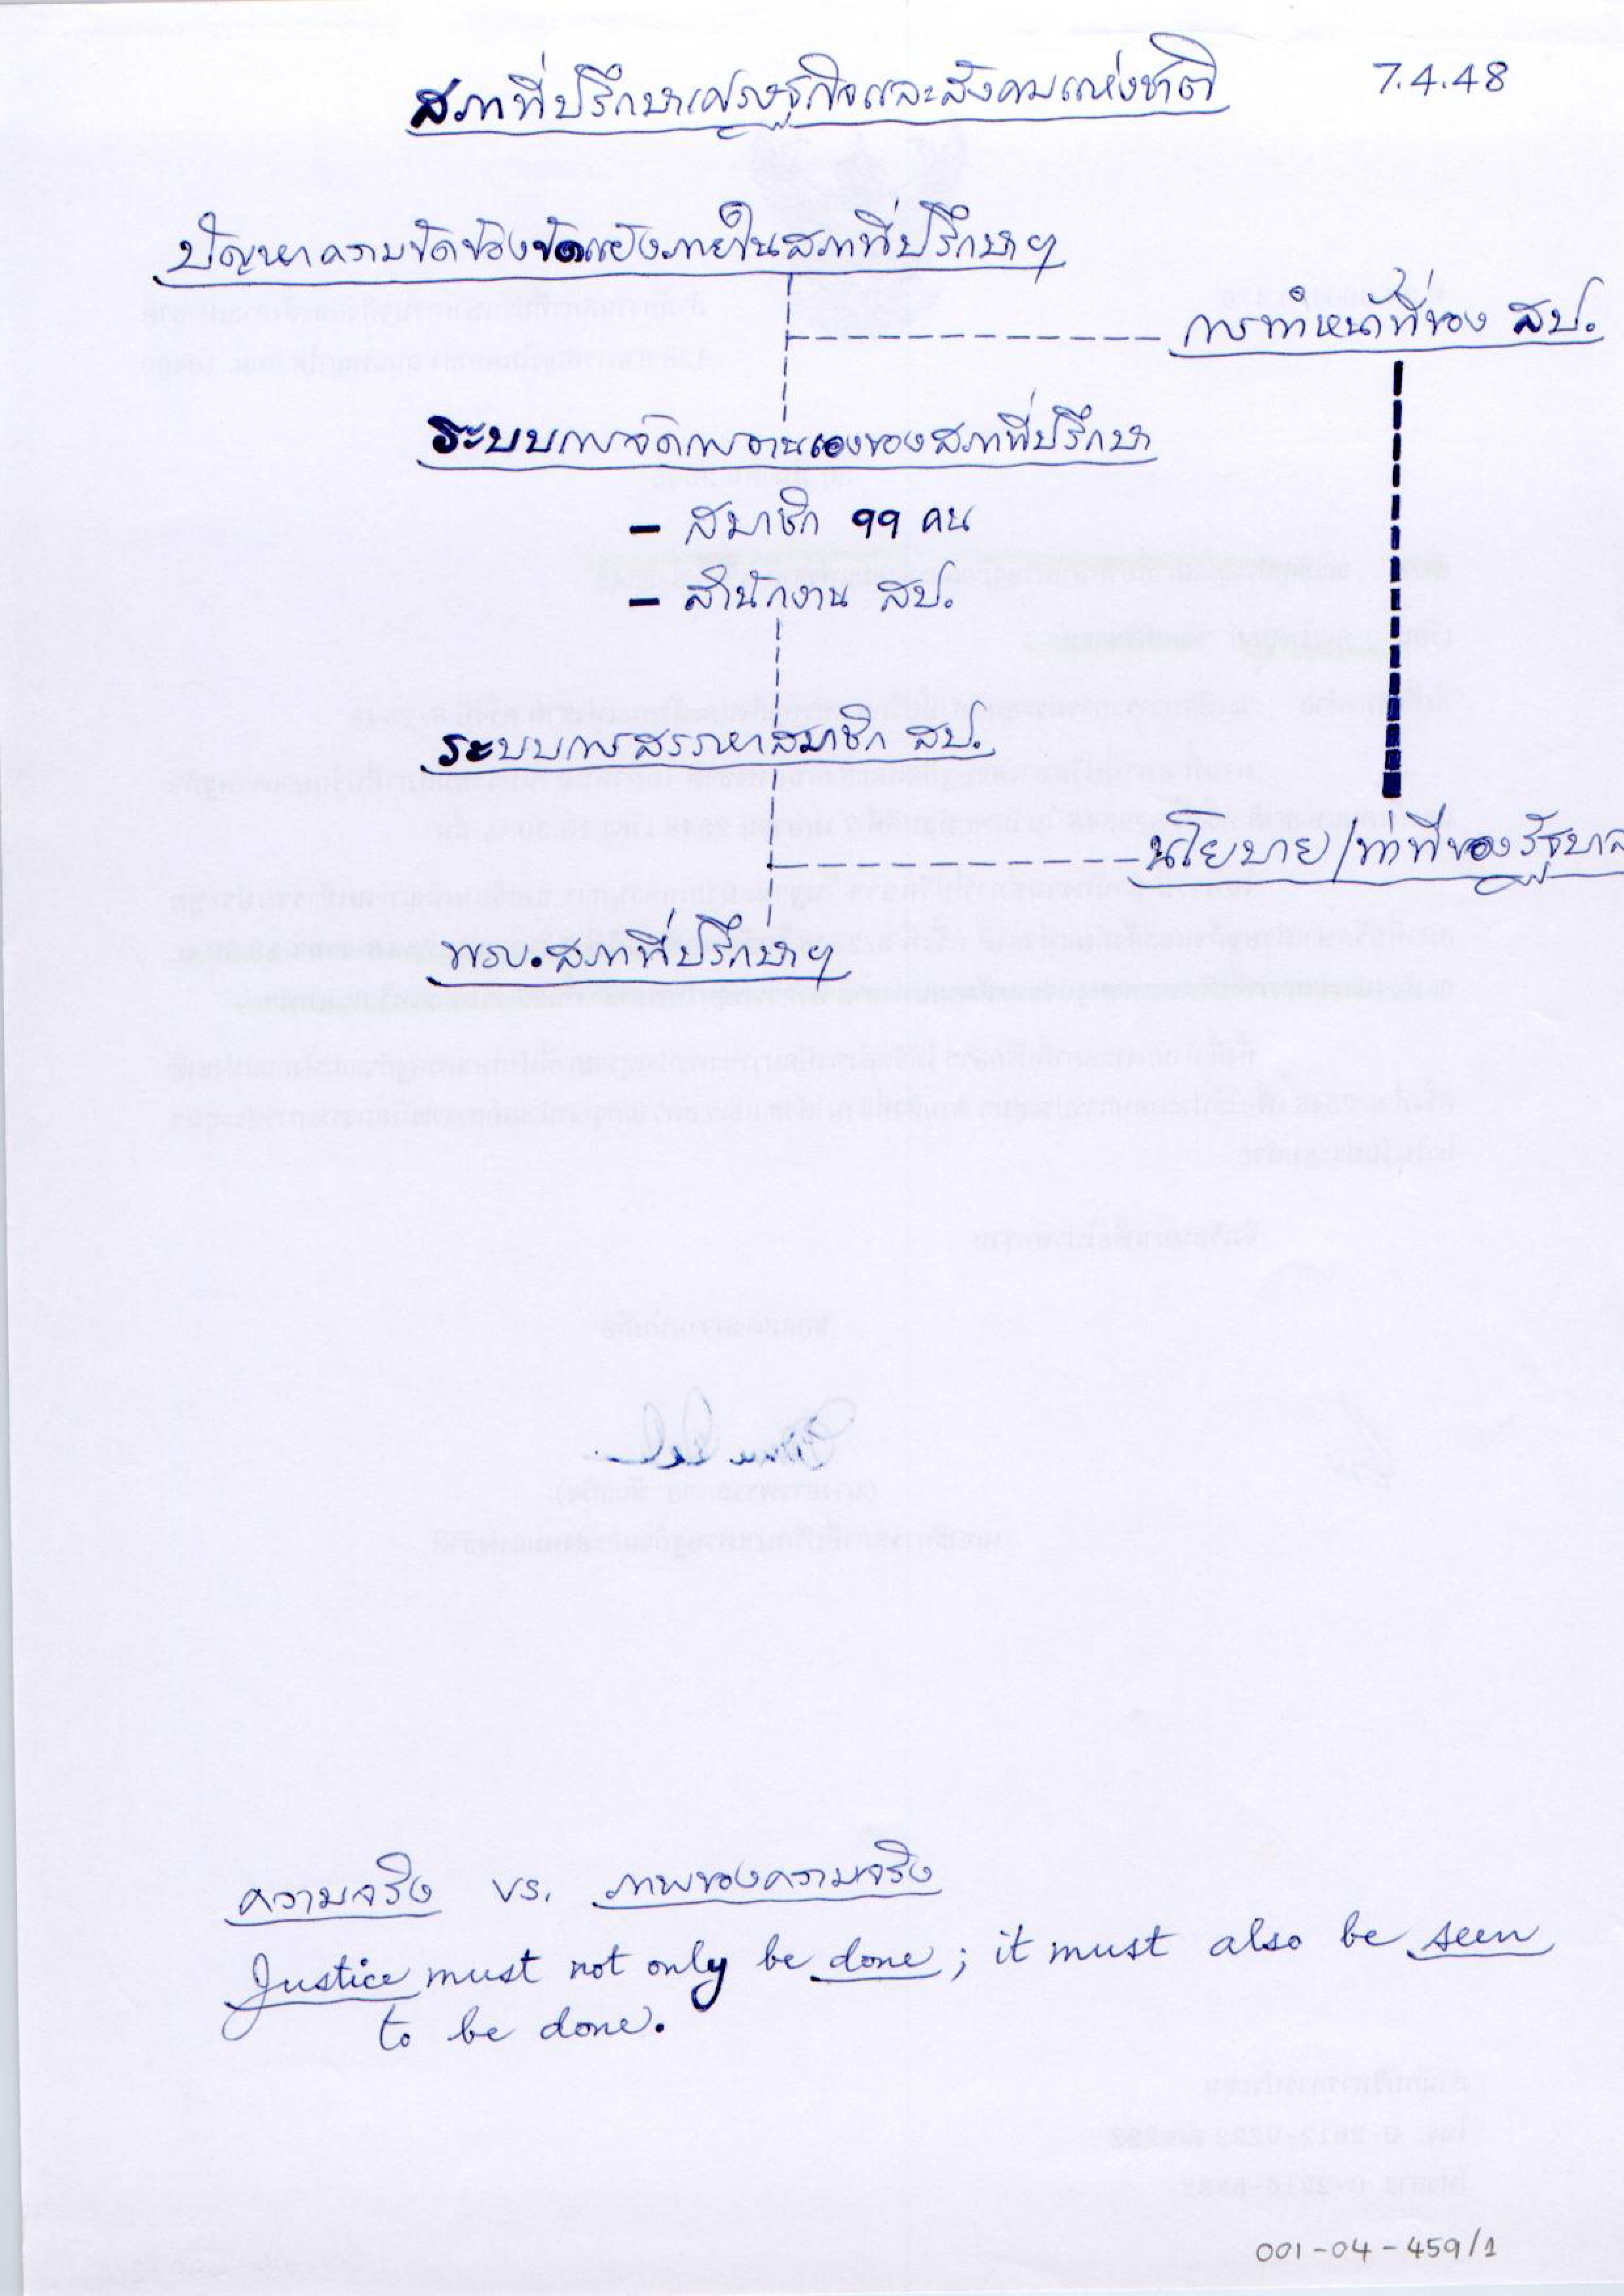 สภาที่ปรึกษาเศรษฐกิจและสังคมแห่งชาติ 7.4.48
ปัญหาความขัดข้องขัดแย้งภายในสภาที่ปรึกษาฯ
การทำหน้าที่ของ สป.
ระบบการจัดการงานเองของสภาที่ปรึกษา
- สมาชิก 99 คน
- สำนักงาน สป.
ระบบการสรรหาสมาชิก สป.
นโยบาย/ท่าทีของรัฐบาล
พรบ.สภาที่ปรึกษาฯ
ความจริง vs. ภาพของความจริง
Justice must not only be done; it must also be seen
to be done.
001-04-459/1